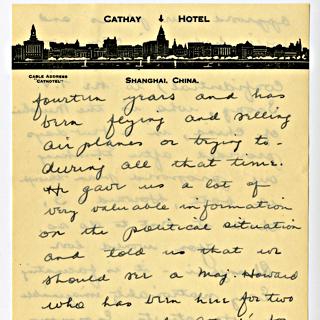 CATHAY HOTEL
CABLE ADDRESS
"CATHOTEL"
SHANGHAI, CHINA.
fourteen years and has
been flying and selling
airplanes or trying to -
during all that time.
He gave us a lot of
very valuable information
on the political situation
and told us that we
should see a Maj. Howard
who has been here for two